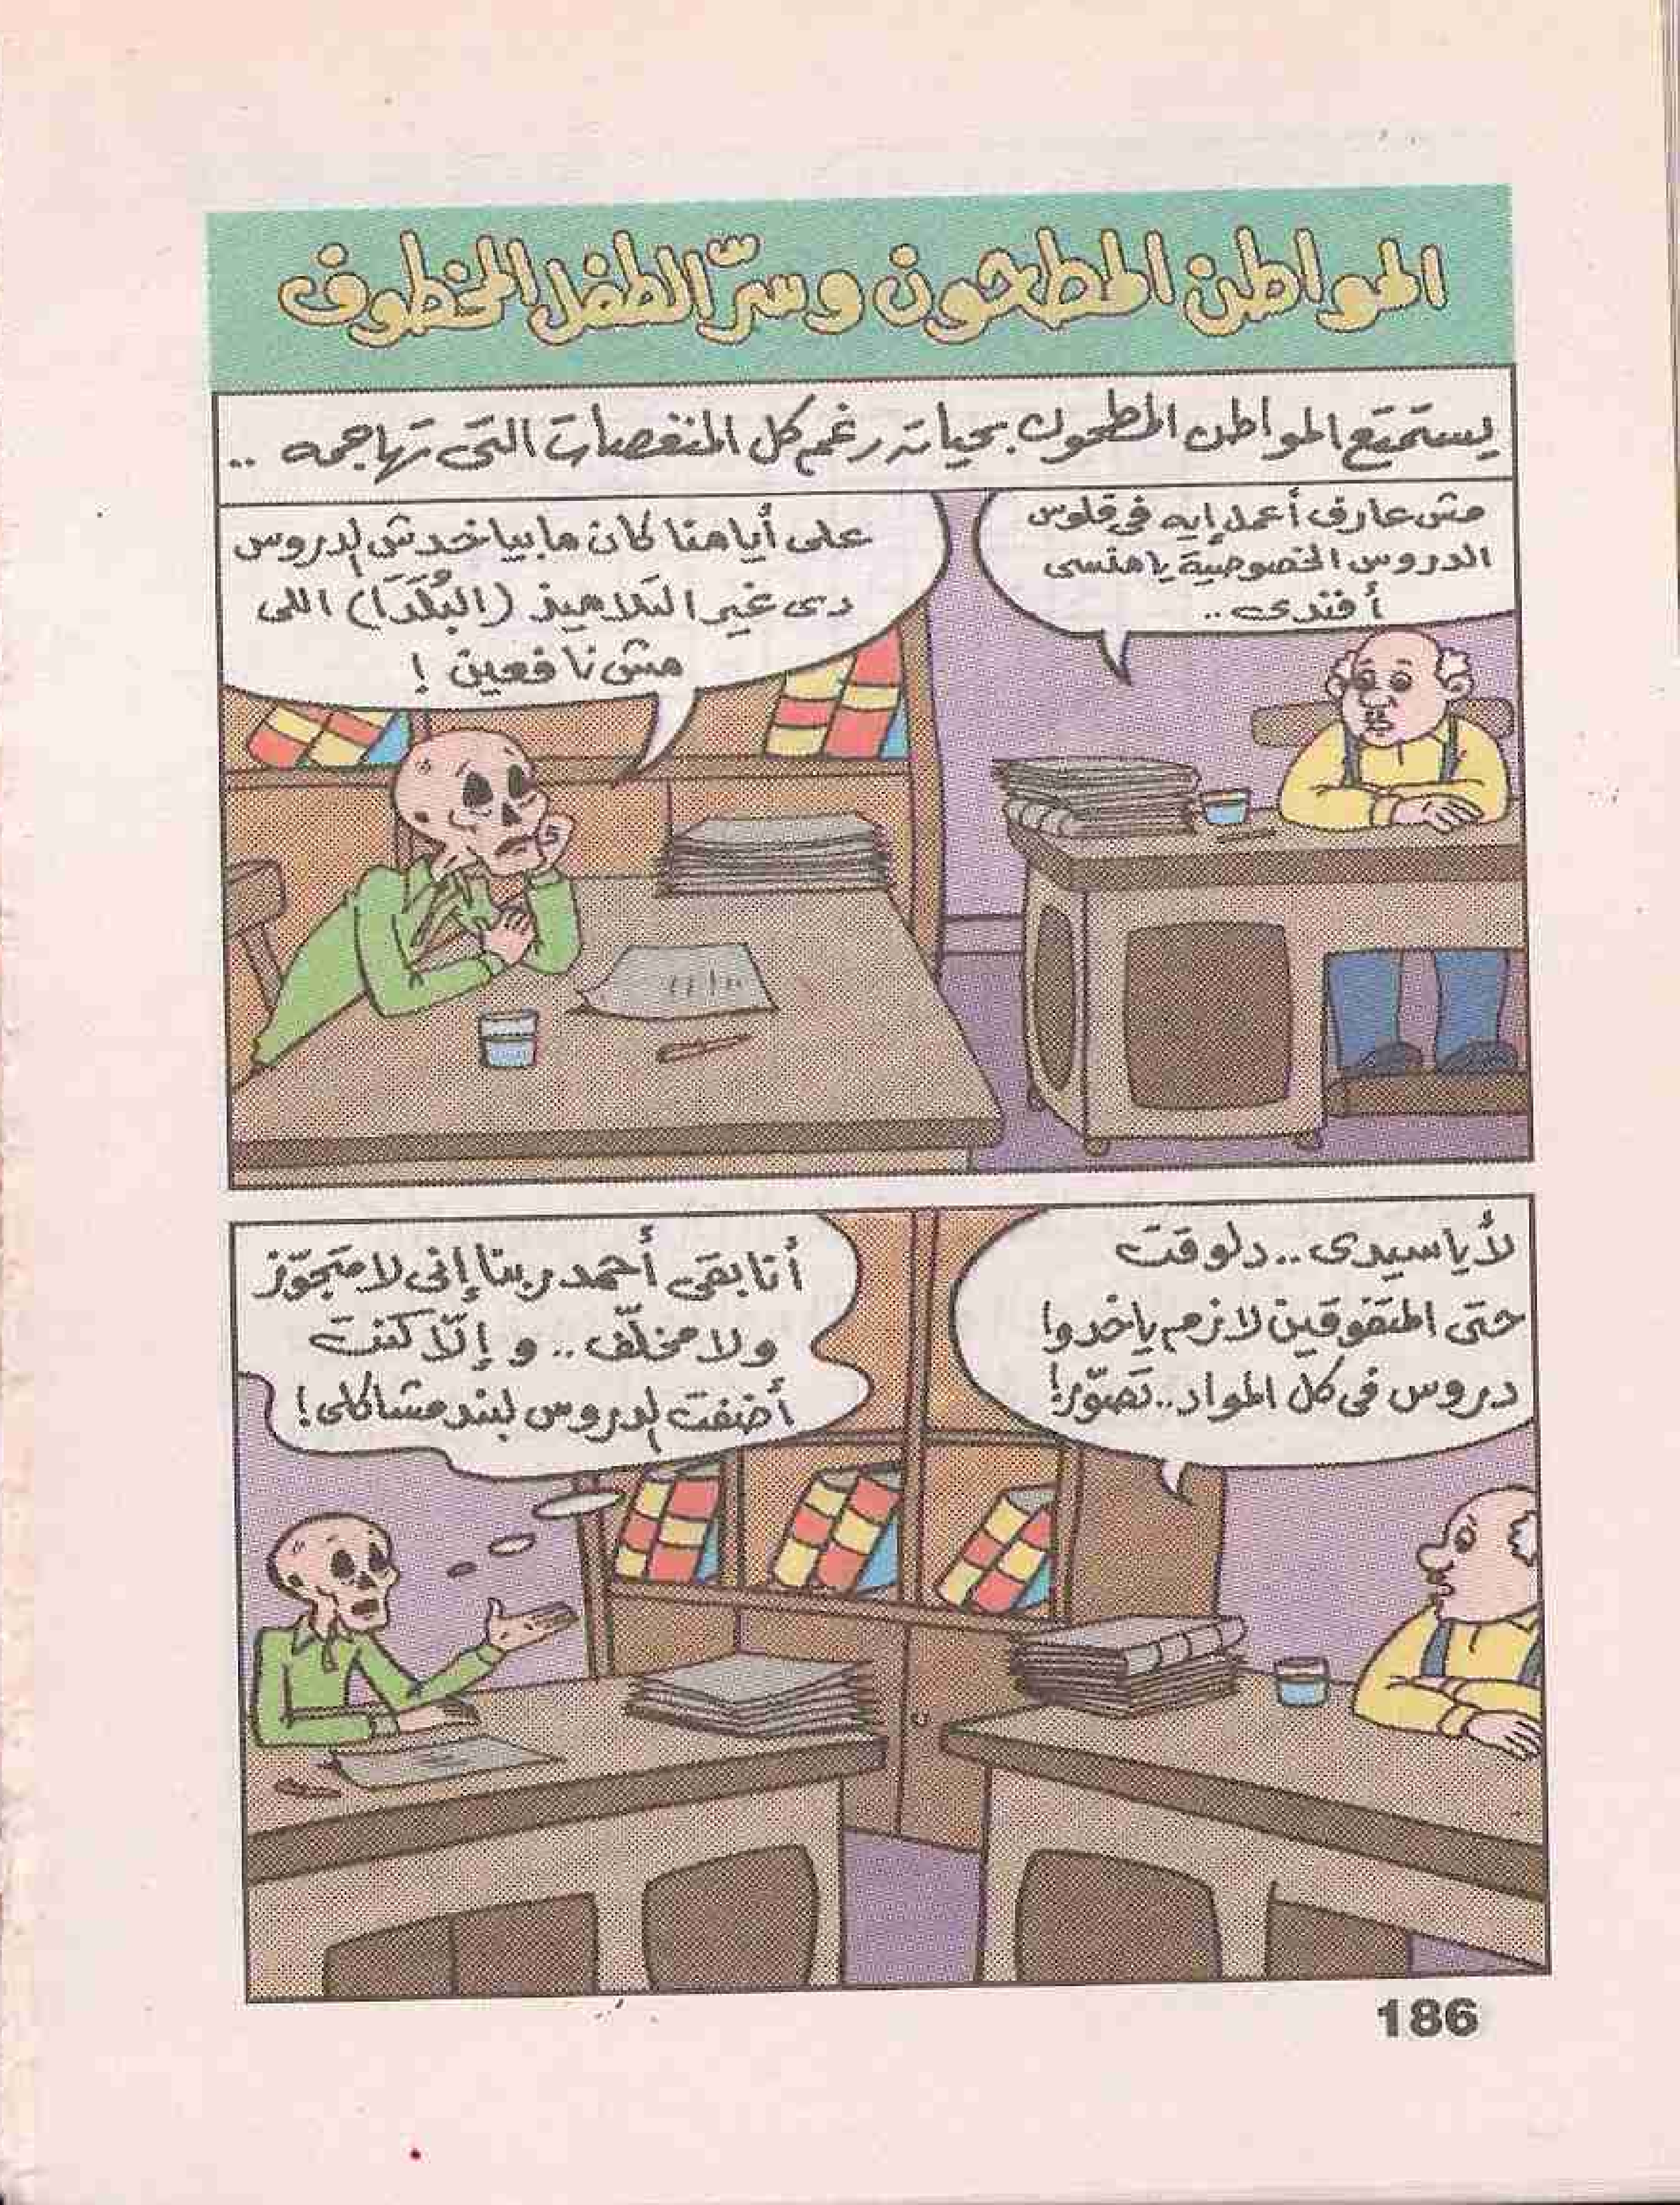 المواطن المطحون وسرّ الطفل المخطوف
يستمتع المواطن المطحون بحياته رغم كل المنغصات التى تهاجمه ..
مش عارف أعمل إيه فى فلوس
الدروس الخصوصية يا منسى
أفندى ..
على أيامنا كان ما بياخدش الدروس
دى غير التلاميذ (البُلَدَا) اللى
مش نافعين !
لأ يا سيدى .. دلوقت
حتى المتفوقين لازم ياخدوا
دروس فى كل المواد .. تصوّر!
أنا بقى أحمد ربنا إنى لا متجوّز
ولا مخلّف .. و إلّا كنت
أضفت الدروس لبند مشاكلى!
186